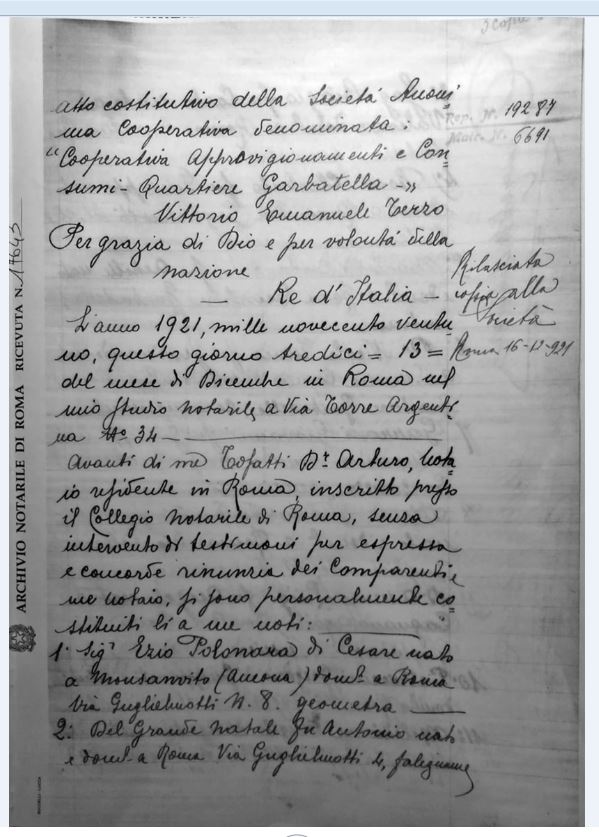 3 copie
atto costitutivo della Società Anoni=
ma Cooperativa denominata:
"Cooperativa Approvigionamenti e Con=
sumi - Quartiere Garbatella -"
Vittorio Emanuele Terzo
Per grazia di Dio e per volontà della
nazione
— Re d'Italia —
L'anno 1921, mille novecento ventu=
no, questo giorno tredici = 13 =
del mese di Dicembre in Roma nel
mio studio notarile, a Via Torre Argenti=
na No 34 —
Avanti di me Tofatti Dr Arturo, Nota=
io residente in Roma, inscritto presso
il Collegio notarile di Roma, senza
intervento di testimoni per espressa
e concorde rinunzia dei Comparenti e
me notaio, si sono personalmente co=
stituiti li a me noti:
1° Sigr Ezio Polonara di Cesare nato
a Monsanvito (Ancona) domto a Roma
Via Guglielmotti N. 8. geometra —
2: Del Grande Natale fu Antonio nato
e domto a Roma Via Guglielmotti 4, falegname
Rep. N. 19287
Matr. N. 6691
Rilasciata
copia alla
società
Roma 16-12-921
ARCHIVIO NOTARILE DI ROMA RICEVUTA N. 17643